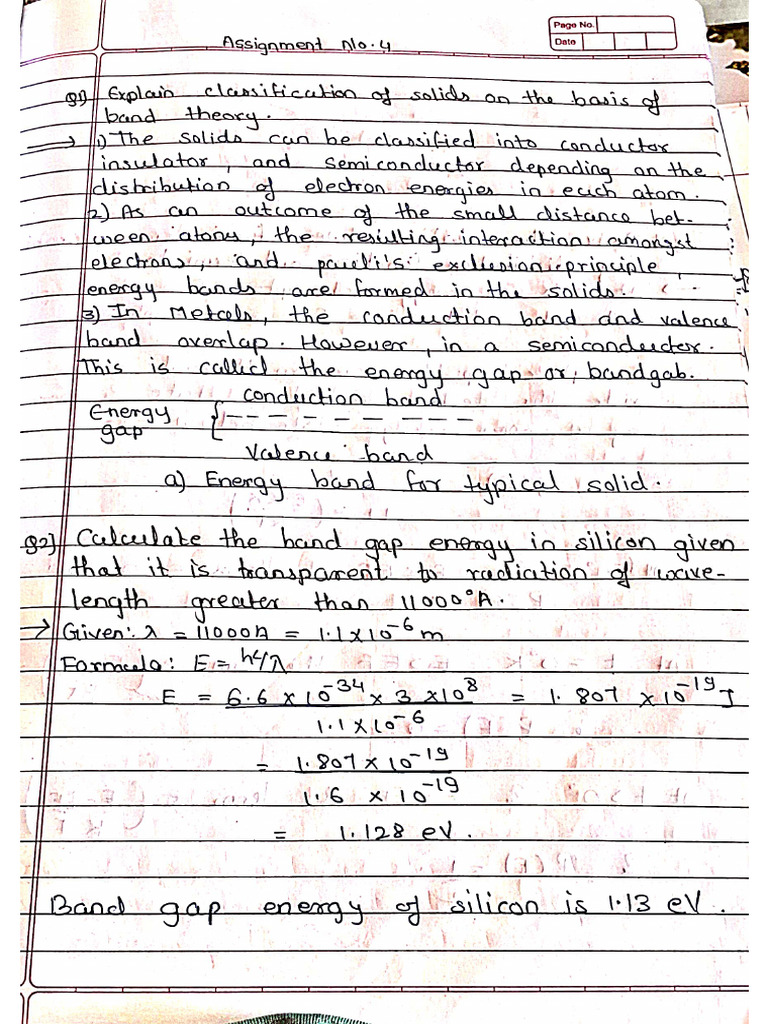 Page No.
Date
Assignment No. 4
Q1) Explain classification of solids on the basis of
band theory.
→ 1) The solids can be classified into conductor
insulator, and semiconductor depending on the
distribution of electron energies in each atom.
2) As an outcome of the small distance bet-
ween atoms, the resulting interaction amongst
electrons, and pauli's exclusion principle,
energy bands are formed in the solids.
3) In Metals, the conduction band and valence
band overlap. However, in a semiconductor.
This is called the energy gap or, bandgab.
conduction band
Energy gap { -- - - - - ---
Valence band
a) Energy band for typical solid.
Q2] Calculate the band gap energy in silicon given
that it is transparent to radiation of wave-
length greater than 11000°A.
→ Given: λ = 11000A = 1.1 x 10⁻⁶ m
Formula: E = hc/λ
E = 6.6 x 10⁻³⁴ x 3 x 10⁸ = 1.807 x 10⁻¹⁹ J
1.1 x 10⁻⁶
= 1.807 x 10⁻¹⁹
1.6 x 10⁻¹⁹
= 1.128 eV.
Band gap energy of silicon is 1.13 eV.